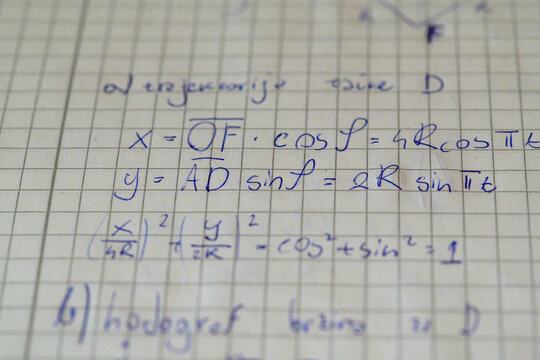 a) trajektorija tačke D
x = OF · cos φ = 4R cos πt
y = AD sin φ = 2R sin πt
(x/4R)² + (y/2R)² = cos² + sin² = 1
b) hodograf brzine D